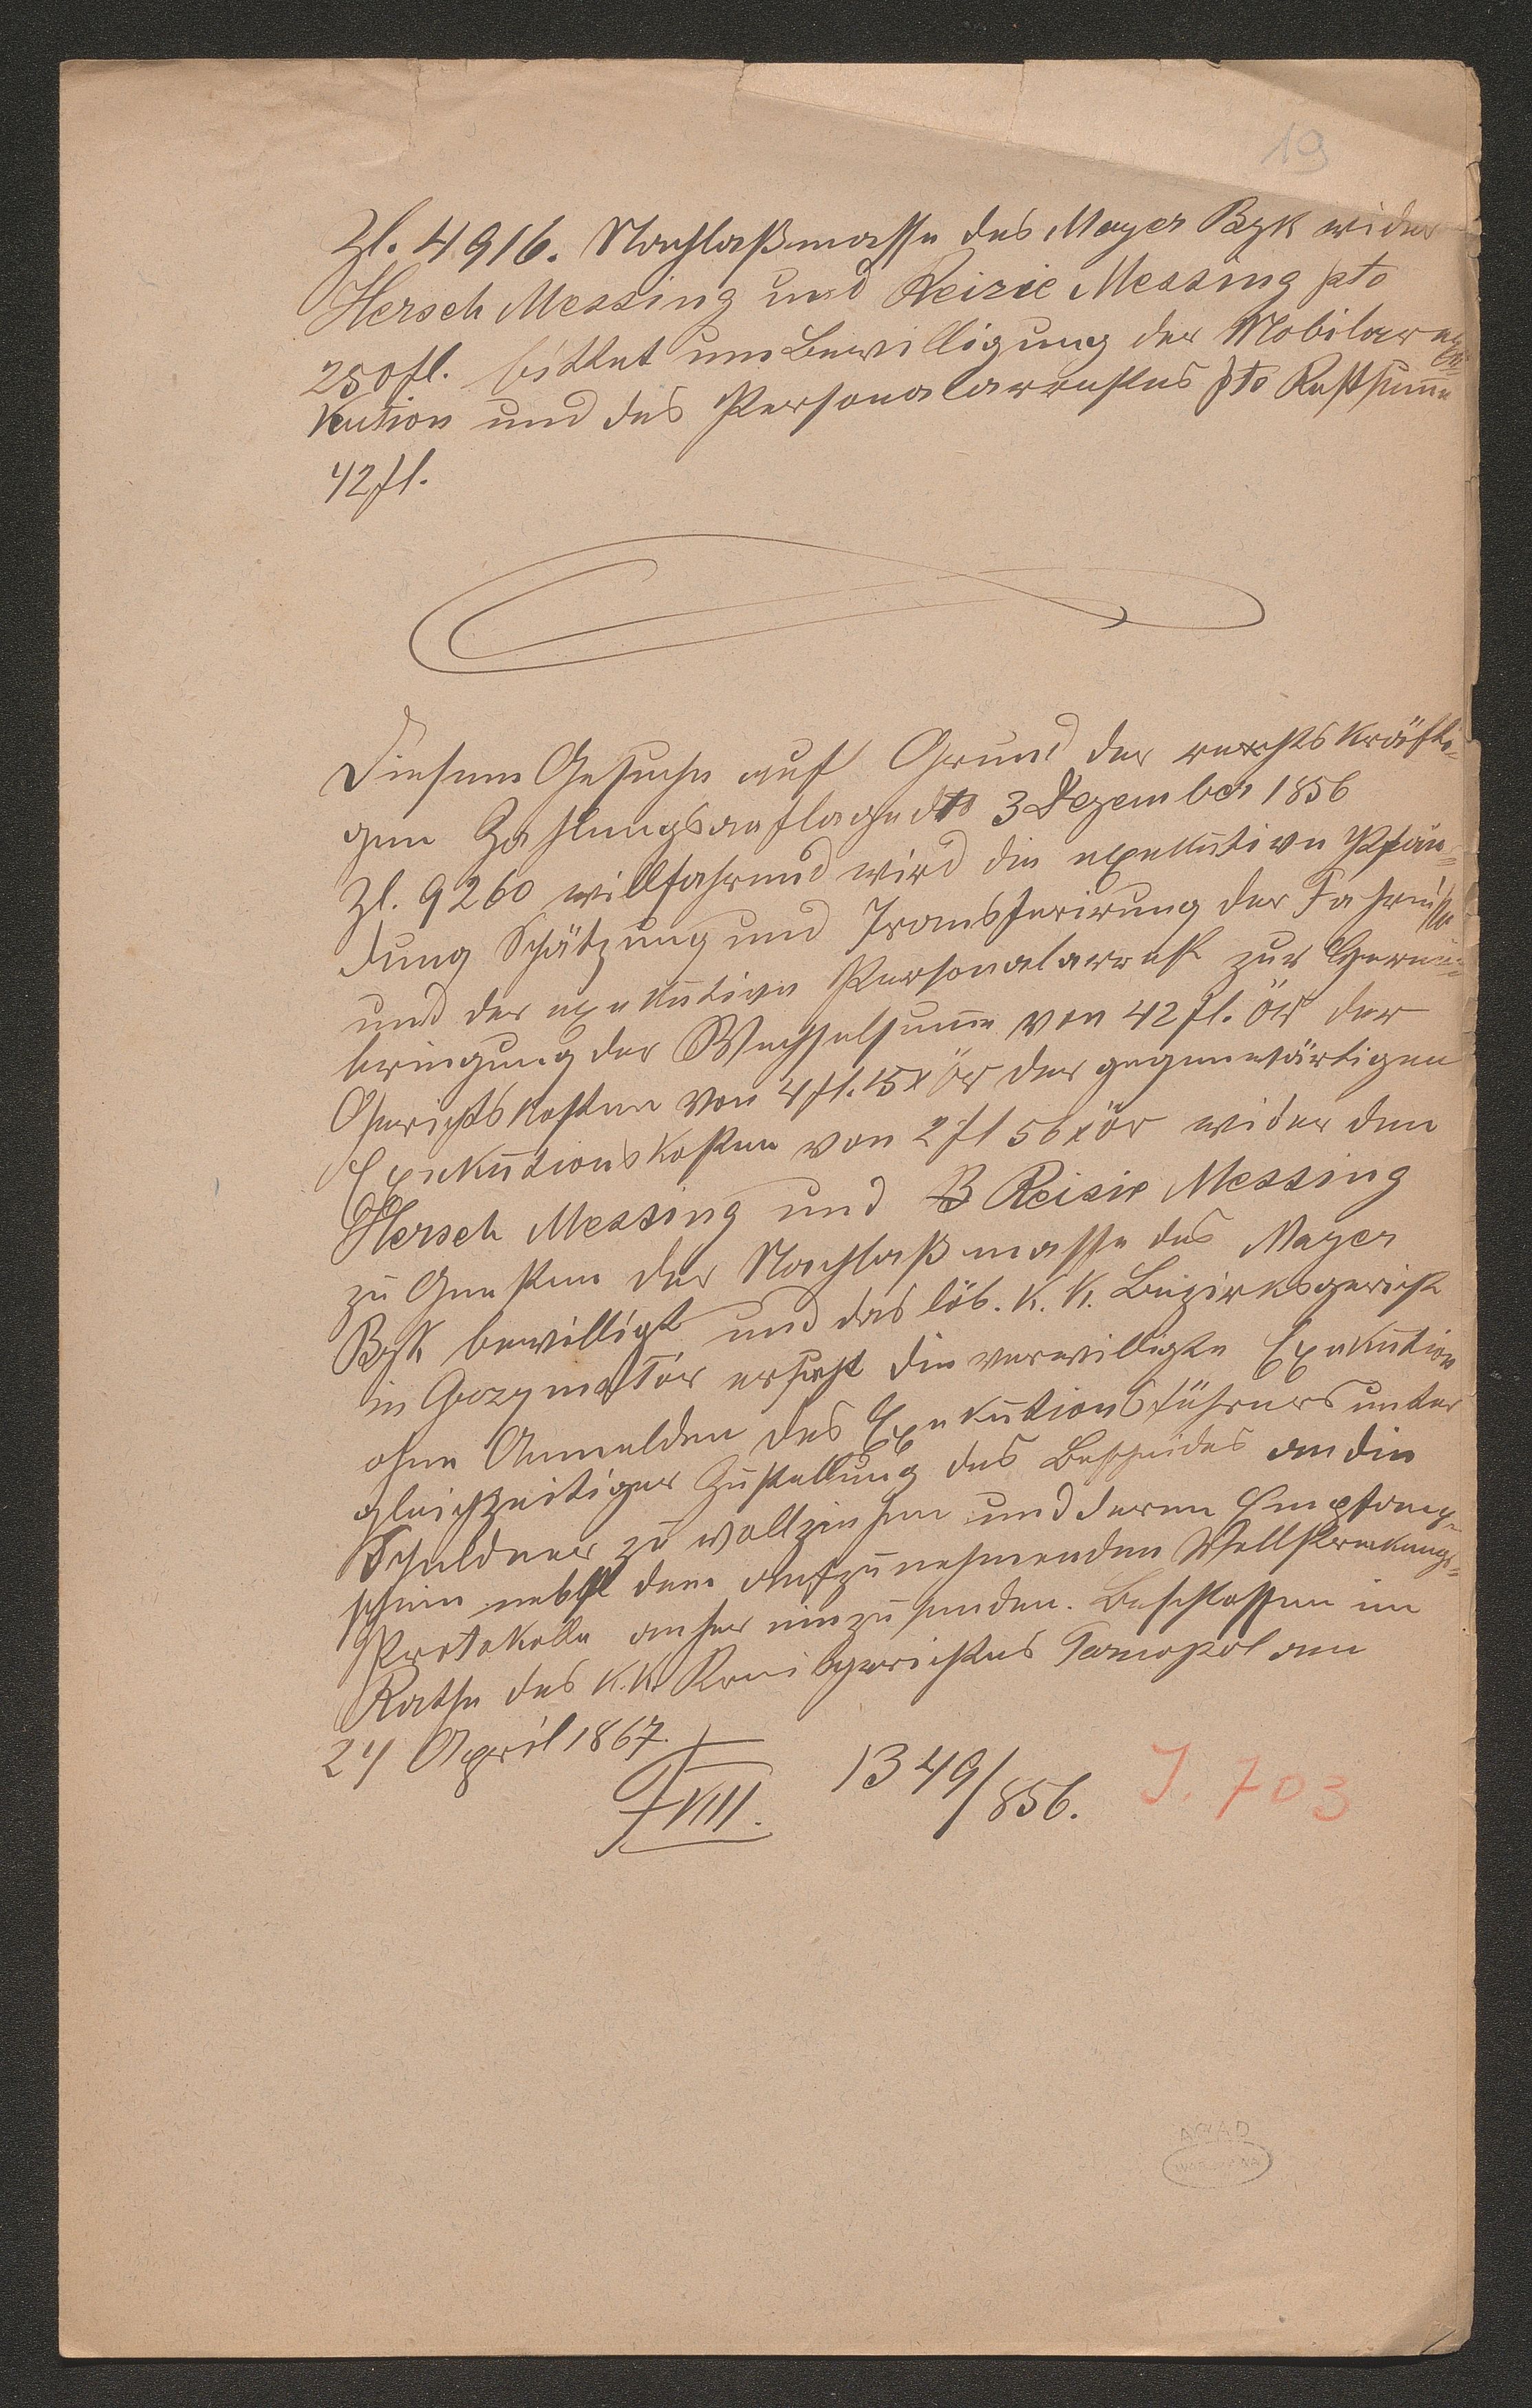 19
Zl. 4916. Nachlaßmasse des Mayer Byk wider
Hersch Messing und Reizie Messing pto
250 fl. bittet um Bewilligung der Mobilarexe-
kution und des Personalarrestes pto Restsumme
42 fl.
Diesem Gesuche auf Grund der rechtskräfti-
gen Zahlungsauflage dto 3 Dezember 1856
Zl. 9260 willfahrend wird die exekutive Pfän-
dung Schätzung und Transferirung der Fahrnisse
und der exekutive Personalarrest zur Herein-
bringung der Wechselsumme von 42 fl. öW der
Gerichtskosten von 4 fl. 15 x öW der gegenwärtigen
Exekutionskosten von 2 fl 56 x öW wider den
Hersch Messing und B Reisie Messing
zu Gunsten der Nachlaßmasse des Mayer
Byk bewilligt und das löb. k. k. Bezirksgericht
in Grzymałów ersucht die verwilligte Exekution
ohne Anmelden des Exekutionsführers unter
gleichzeitiger Zustellung des Bescheides an die
Schuldner zu vollziehen und deren Empfang-
schein nebst dem aufzunehmenden Vollstreckungs-
Protokolle anher einzusenden. Beschlossen im
Rathe des k. k. Kreisgerichtes Tarnopol am
24 April 1867.
VIII.
1349/856.
J. 703
AGAD
WARSZAWA